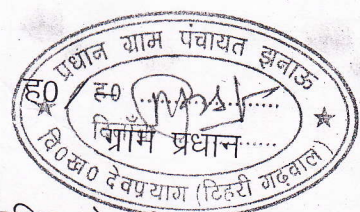 प्रधान ग्राम पंचायत झनाऊ
ह0 ह0
ग्राम प्रधान
वि0ख0 देवप्रयाग (टिहरी गढ़वाल)